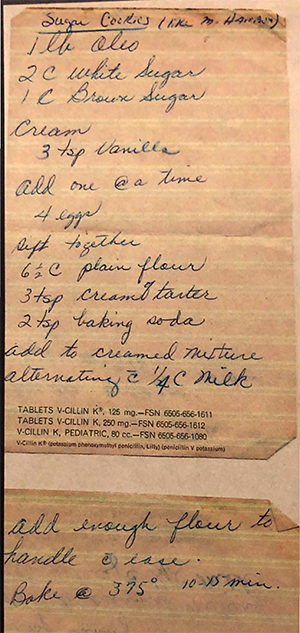 Sugar Cookies (like M.
1 lb Oleo
2 C White Sugar
1 C Brown Sugar
Cream
3 tsp Vanilla
add one @ a time
4 eggs
sift together
6 1/2 C plain flour
3 tsp cream of tarter
2 tsp baking soda
add to creamed mixture
alternating c̄ 1/4 C Milk
TABLETS V-CILLIN K®, 125 mg.—FSN 6505-656-1611
TABLETS V-CILLIN K, 250 mg.—FSN 6505-656-1612
V-CILLIN K, PEDIATRIC, 80 cc.—FSN 6505-656-1080
V-Cillin K® (potassium phenoxymethyl penicillin, Lilly) (penicillin V potassium)
add enough flour to
handle c̄ ease.
Bake @ 375° 10-15 min.